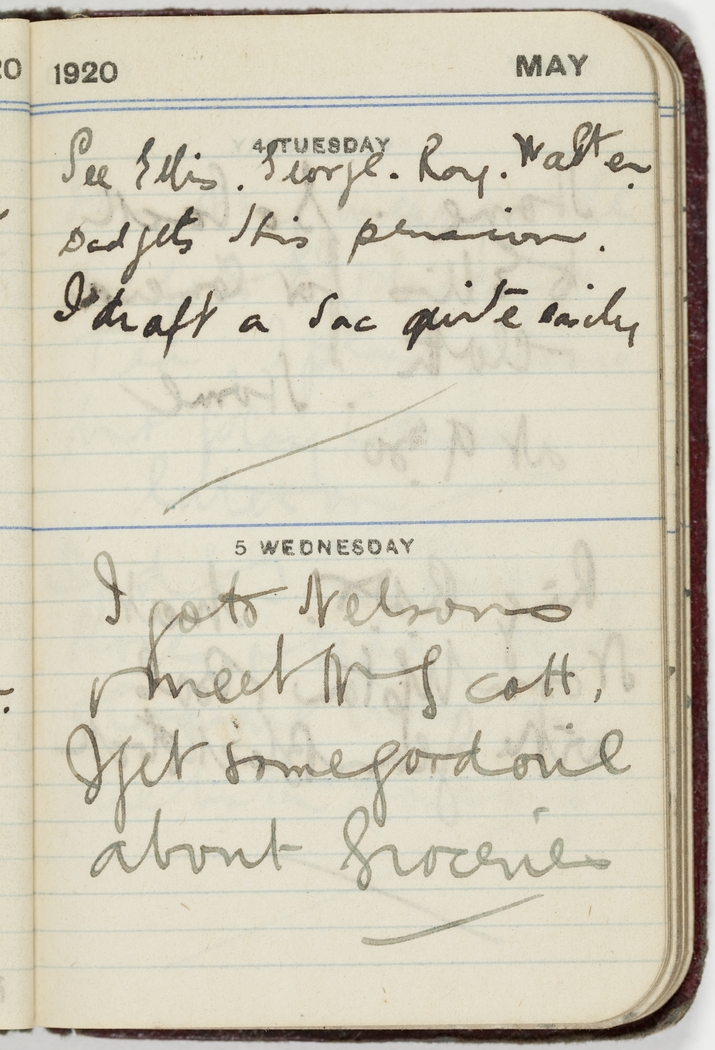 20 1920 MAY
4 TUESDAY
See Ellis. George. Roy. Walter
Dad gets his pension.
I draft a Sac quite easily
5 WEDNESDAY
I go to Nelsons
& meet W Scott,
I get some good oil
about Groceries